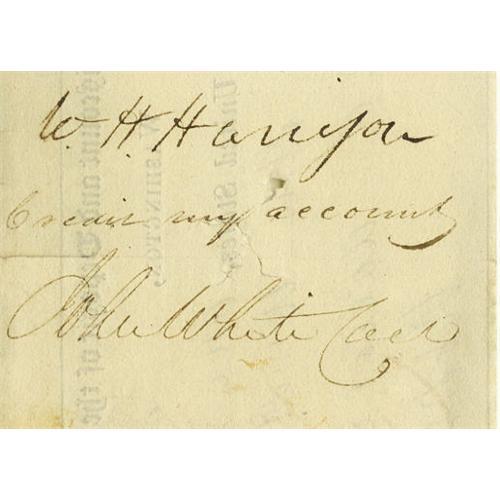 W. H. Harrison
Credit my account
John White Cash